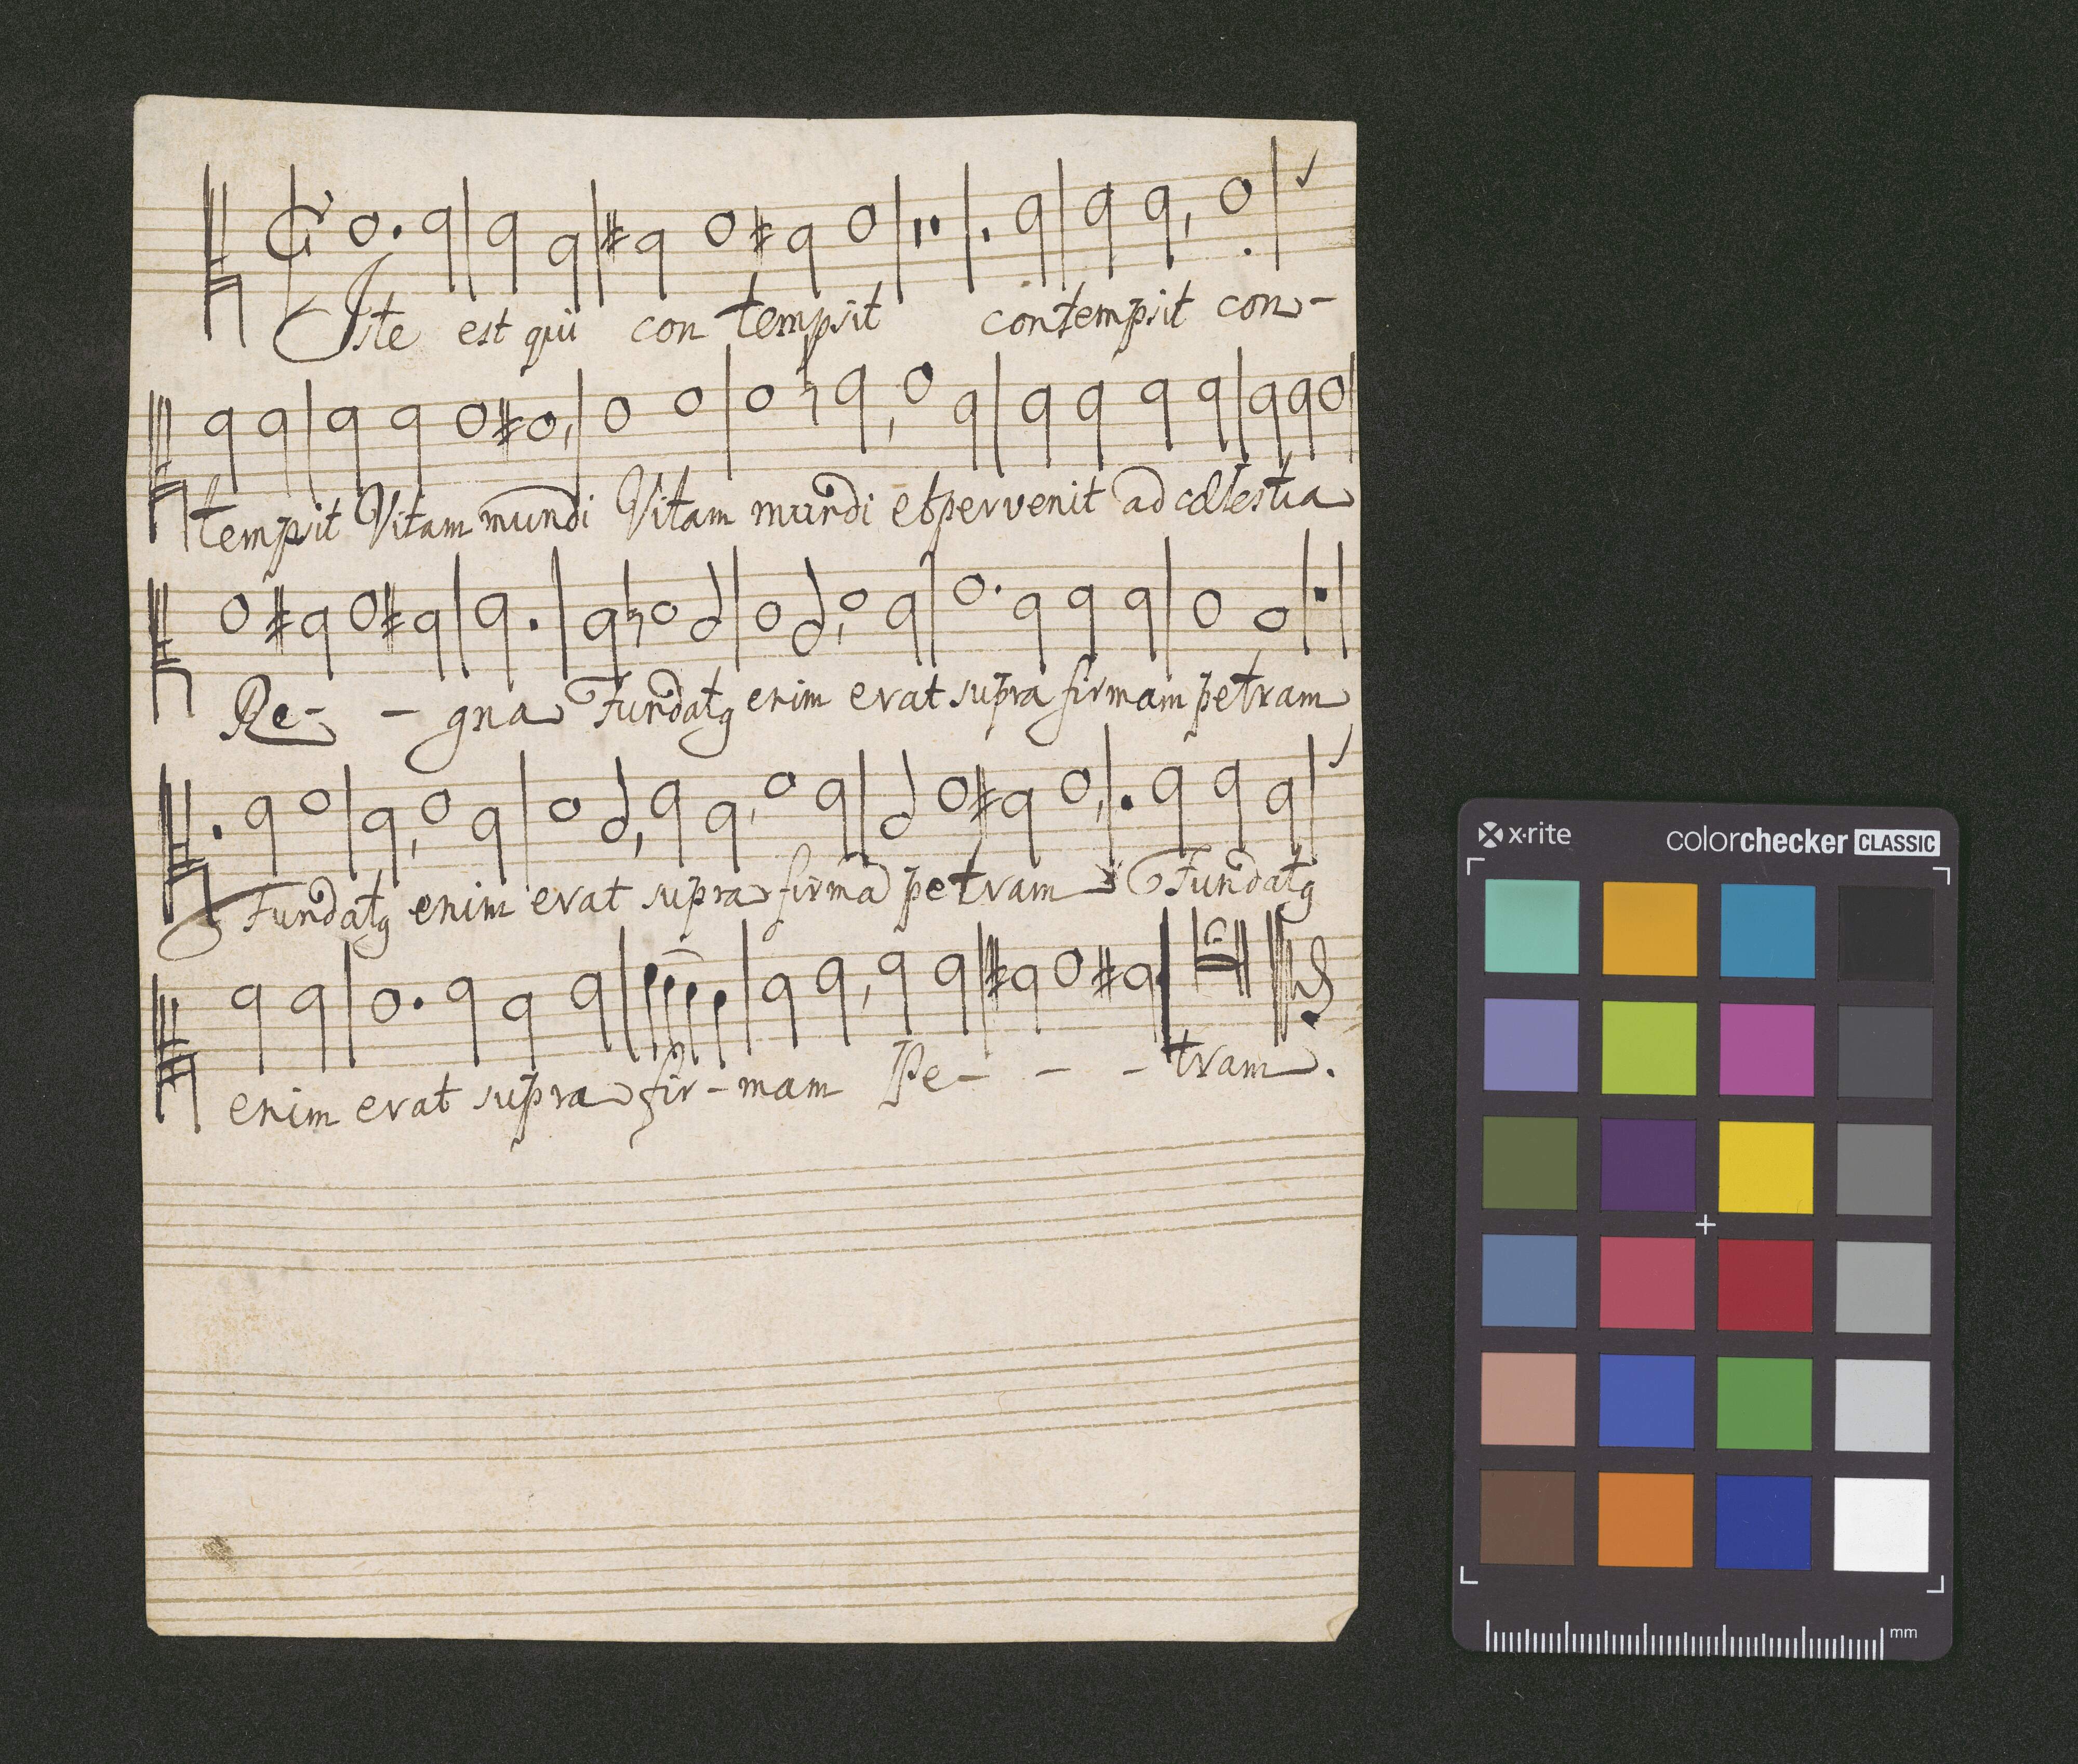 Iste est qui con tempsit contempsit con-
tempsit Vitam mundi Vitam mundi et pervenit ad cælestia
Re- - gna Fundatq enim erat supra firmam petram
Fundatq enim erat supra firmā petram Fundatq
enim erat supra fir-mam Pe- - - tram.
x·rite colorchecker CLASSIC
mm